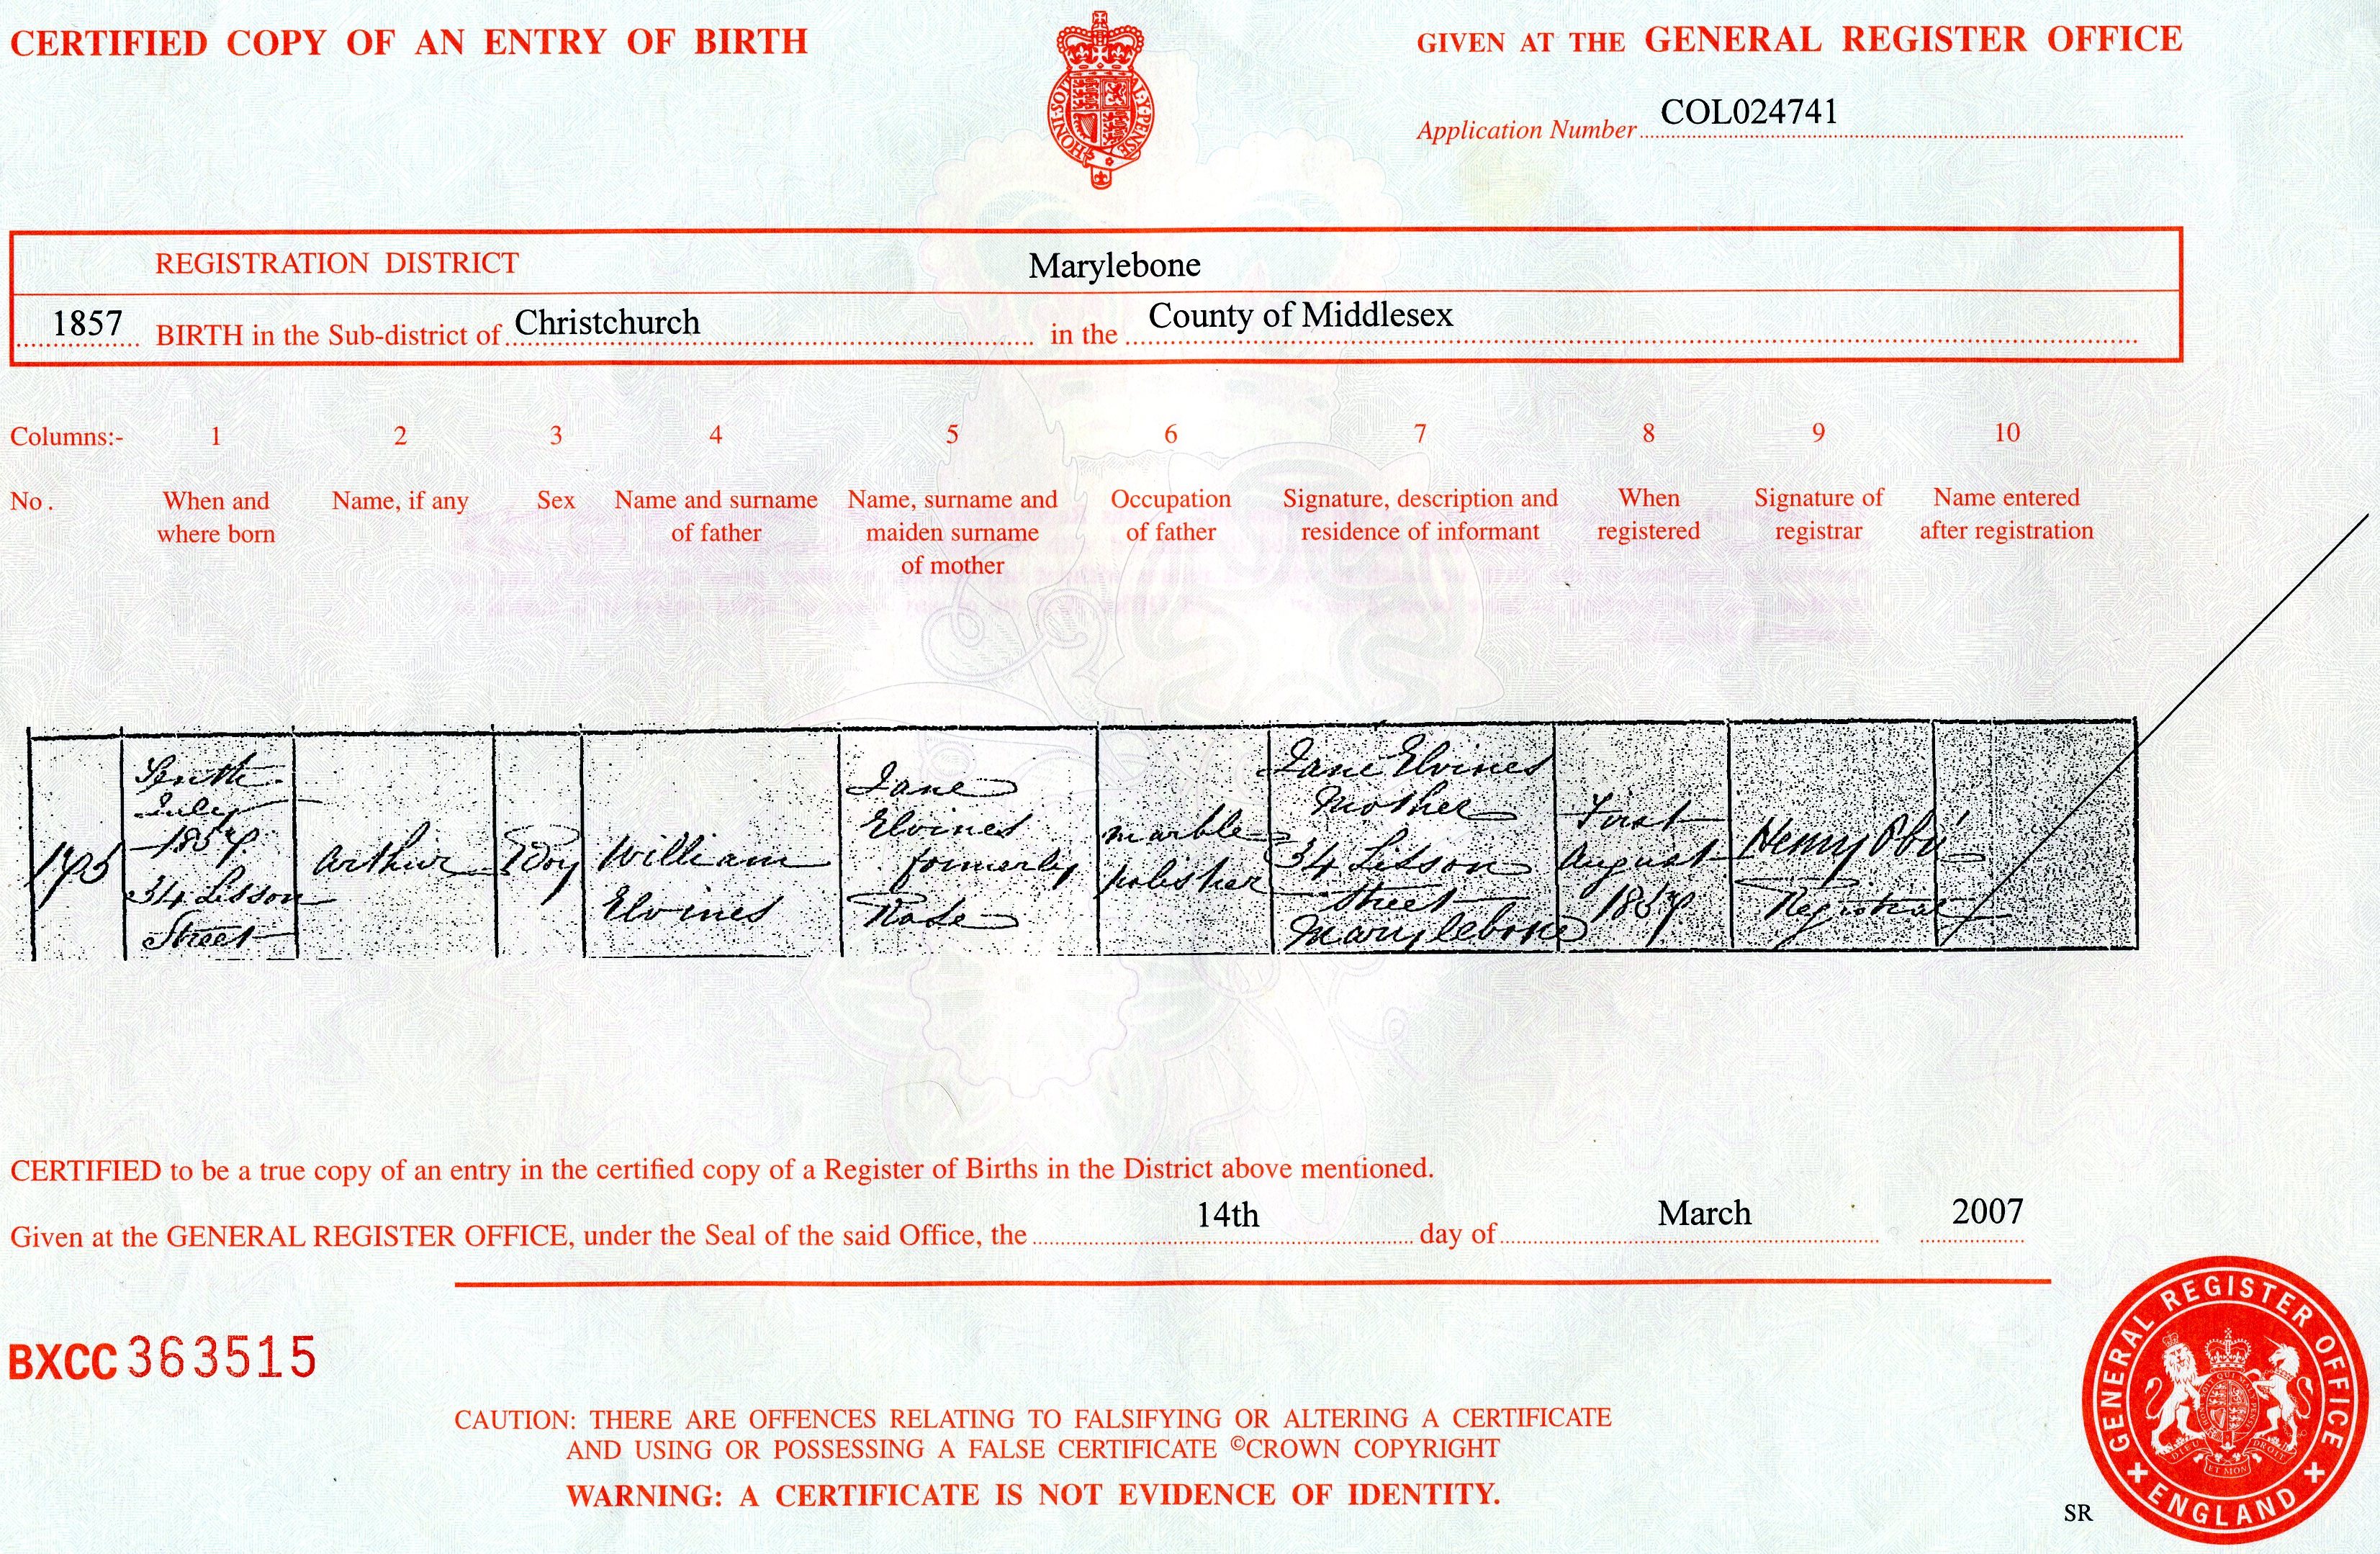 CERTIFIED COPY OF AN ENTRY OF BIRTH
HONI·SOIT AL·Y·PENSE
GIVEN AT THE GENERAL REGISTER OFFICE
Application Number COL024741
REGISTRATION DISTRICT Marylebone
1857 BIRTH in the Sub-district of Christchurch in the County of Middlesex
Columns:- 1 2 3 4 5 6 7 8 9 10
No. When and where born
Name, if any
Sex
Name and surname of father
Name, surname and maiden surname of mother
Occupation of father
Signature, description and residence of informant
When registered
Signature of registrar
Name entered after registration
July
1857
34 Lisson
Street
Arthur
Boy
William
Elvines
Jane
Elvines
formerly
marble
polisher
Jane Elvines
Mother
34 Lisson
Street
Marylebone
First
August
1857
Henry
Registrar
CERTIFIED to be a true copy of an entry in the certified copy of a Register of Births in the District above mentioned.
Given at the GENERAL REGISTER OFFICE, under the Seal of the said Office, the 14th day of March 2007
BXCC 363515
CAUTION: THERE ARE OFFENCES RELATING TO FALSIFYING OR ALTERING A CERTIFICATE
AND USING OR POSSESSING A FALSE CERTIFICATE ©CROWN COPYRIGHT
WARNING: A CERTIFICATE IS NOT EVIDENCE OF IDENTITY.
SR
GENERAL REGISTER OFFICE
DIEU ET MON DROIT
ENGLAND